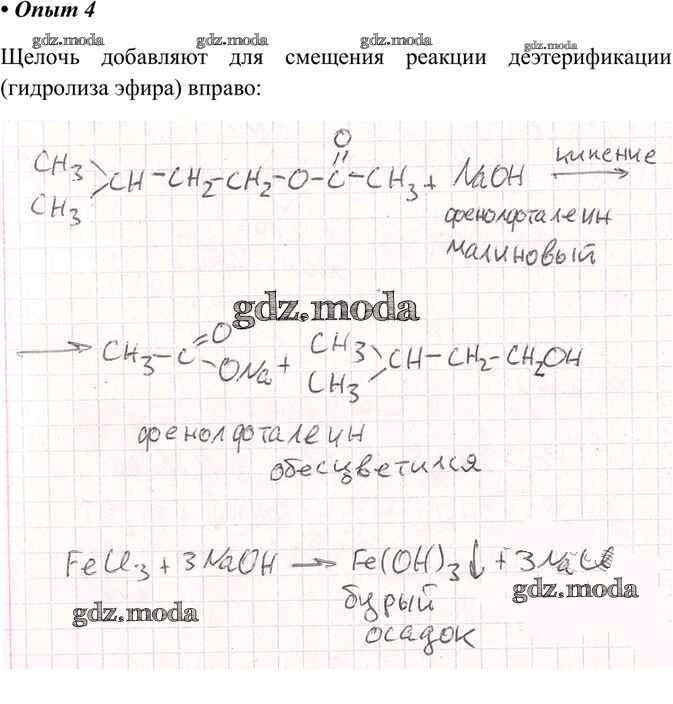 • Опыт 4
gdz.moda gdz.moda gdz.moda gdz.moda
Щелочь добавляют для смещения реакции деэтерификации
(гидролиза эфира) вправо:
O
CH3 \ CH-CH2-CH2-O-C-CH3 + NaOH кипение →
CH3 /
фенолфталеин
малиновый
gdz.moda
→ CH3-C=O ONa + CH3 CH3 CH-CH2-CH2OH
фенолфталеин
обесцветился
FeCl3 + 3NaOH → Fe(OH)3↓ + 3NaCl
бурый
осадок
gdz.moda gdz.moda